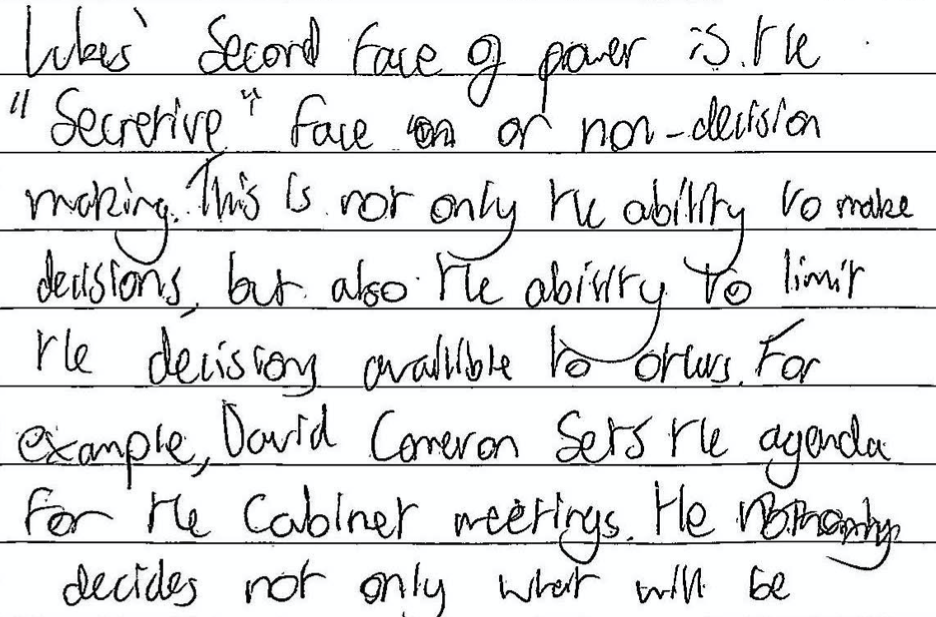 Lukes' Second Face of power is the
"Secretive" face or non-decision
making. This is not only the ability to make
decisions, but also the ability to limit
the decisions availible to others. For
example, David Cameron sets the agenda
for the Cabinet meetings. He
decides not only what will be